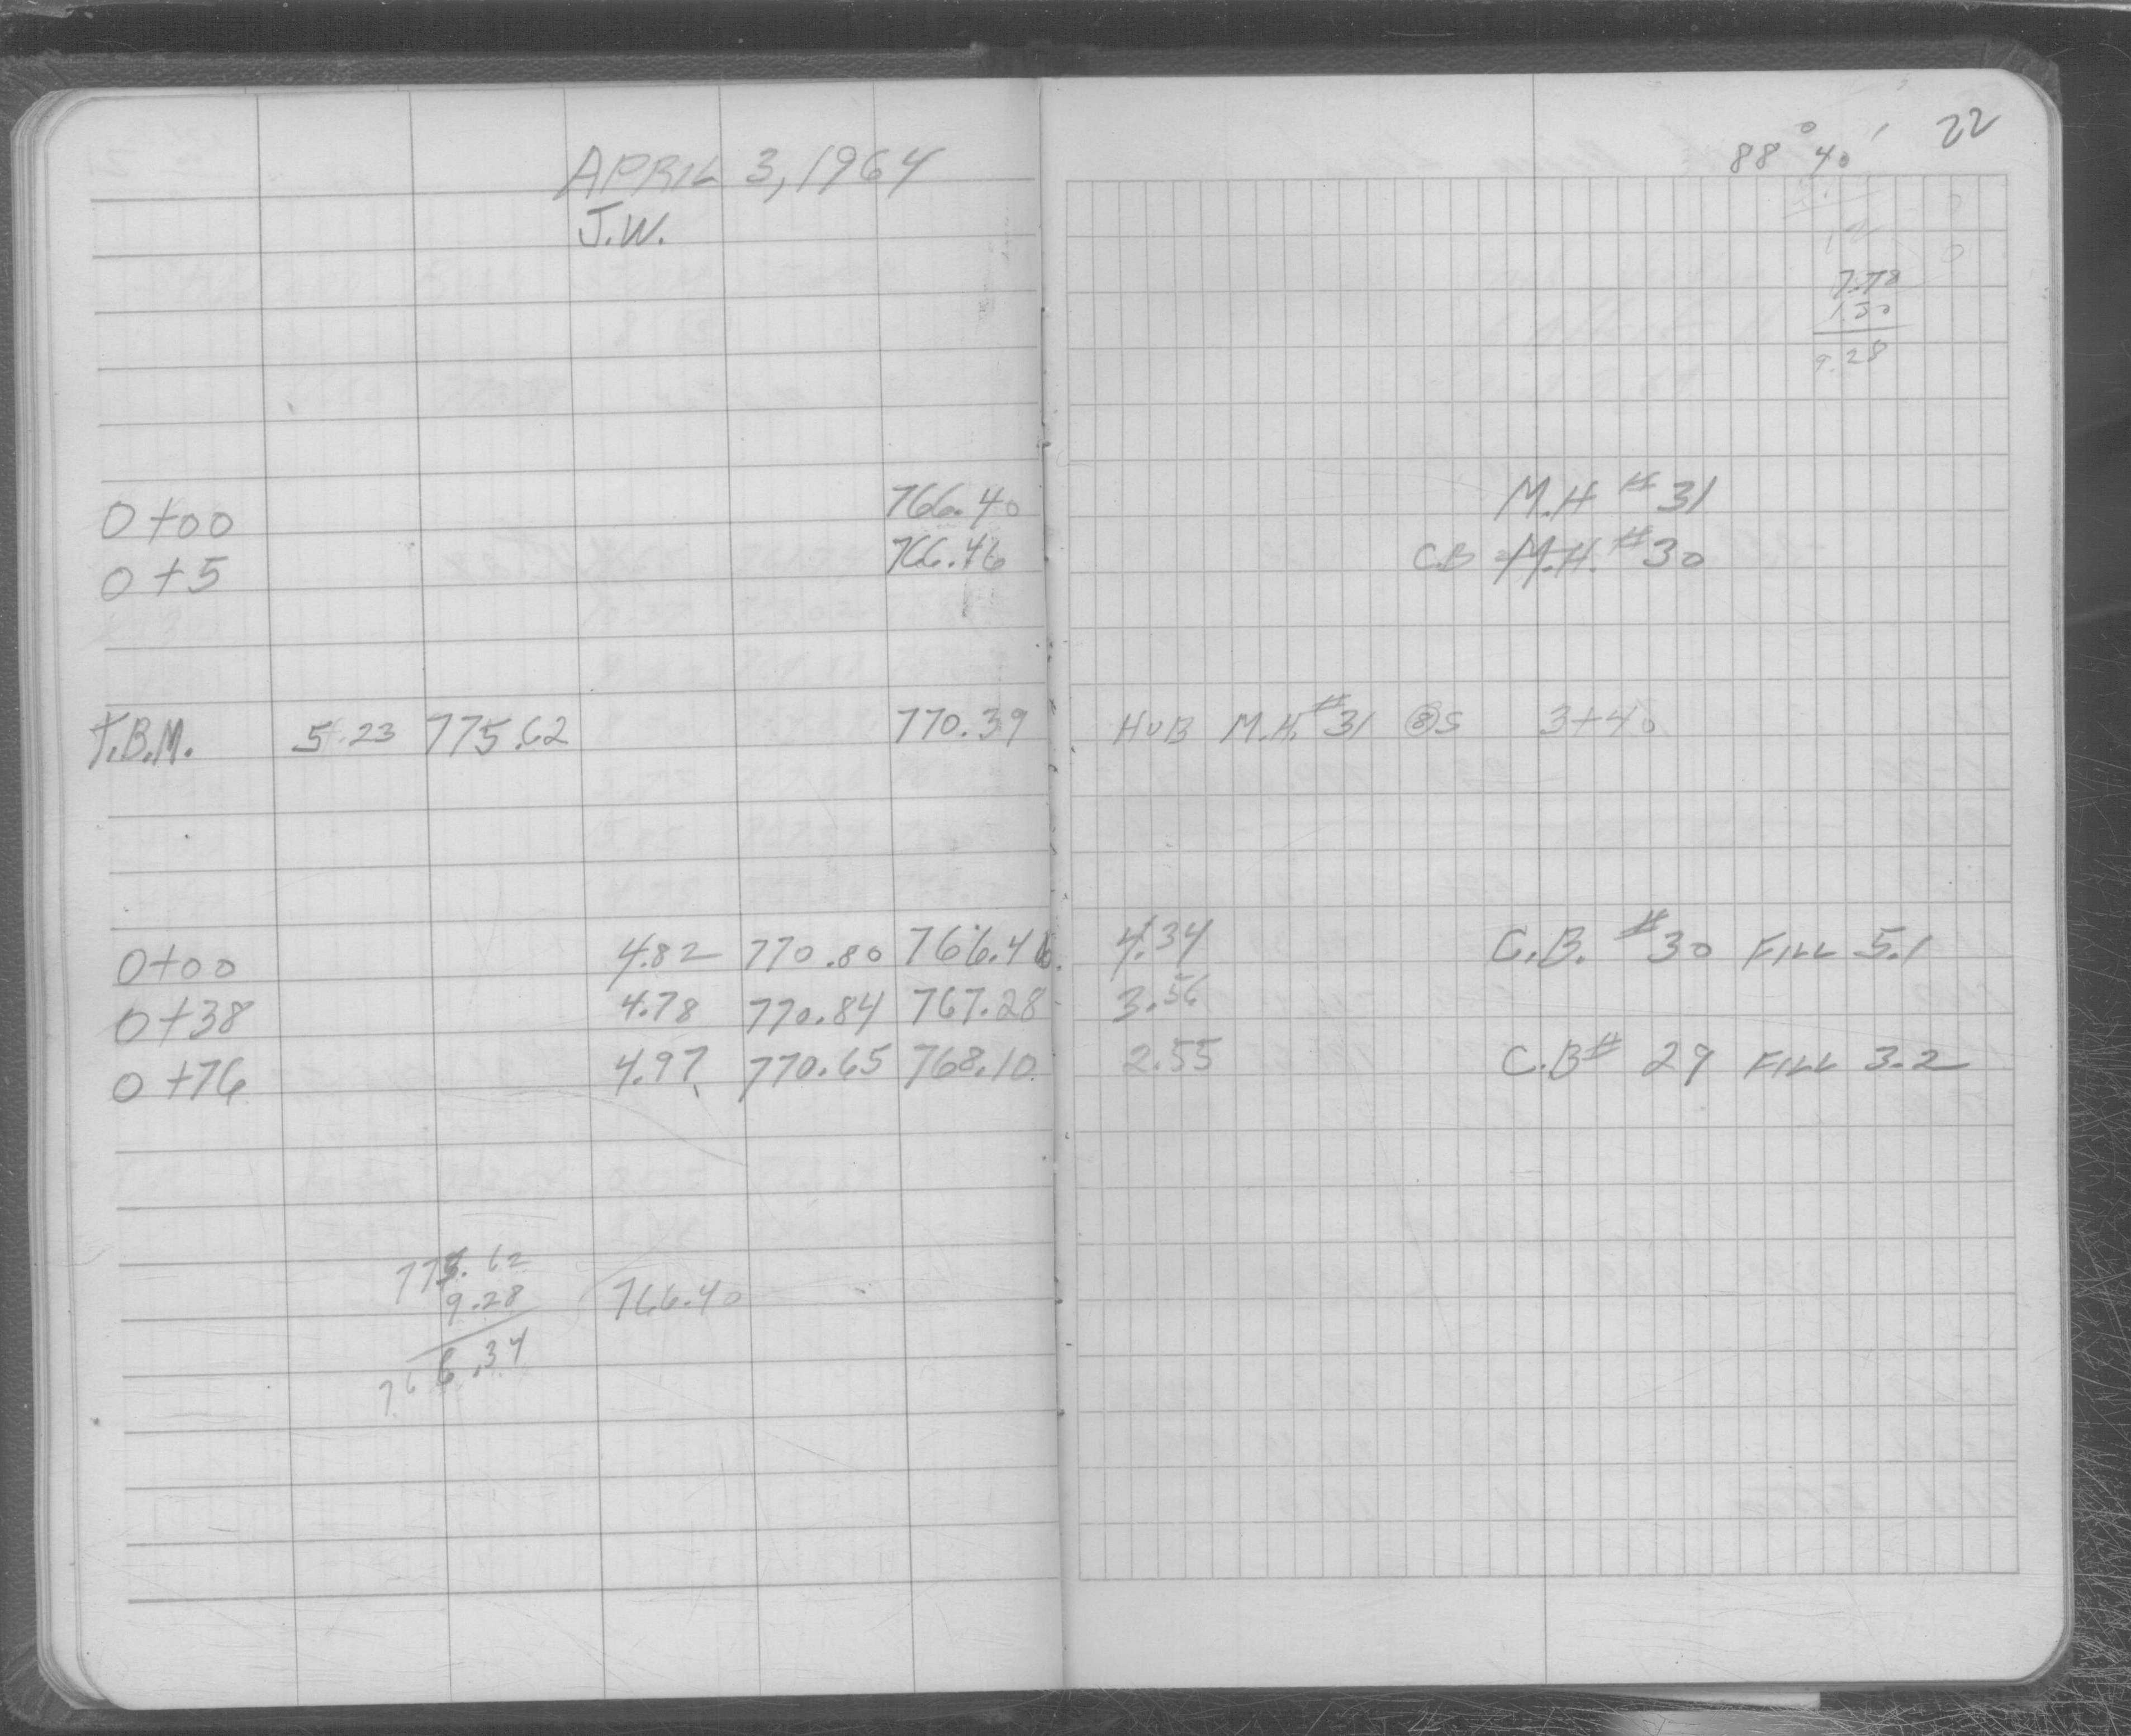 22
88° 40'
APRIL 3, 1964
J.W.
7.78
1.50
9.28
0+00 766.40 M.H #31
0+5 766.46 C.B M.H. #30
T.B.M. 5.23 775.62 770.39 HUB M.H. #31 @S 3+40
0+00 4.82 770.80 766.46 4.34 C.B. #30 FILL 5.1
0+38 4.78 770.84 767.28 3.56
0+76 4.97 770.65 768.10 2.55 C.B# 29 FILL 3.2
775.62
9.28 766.40
766.34